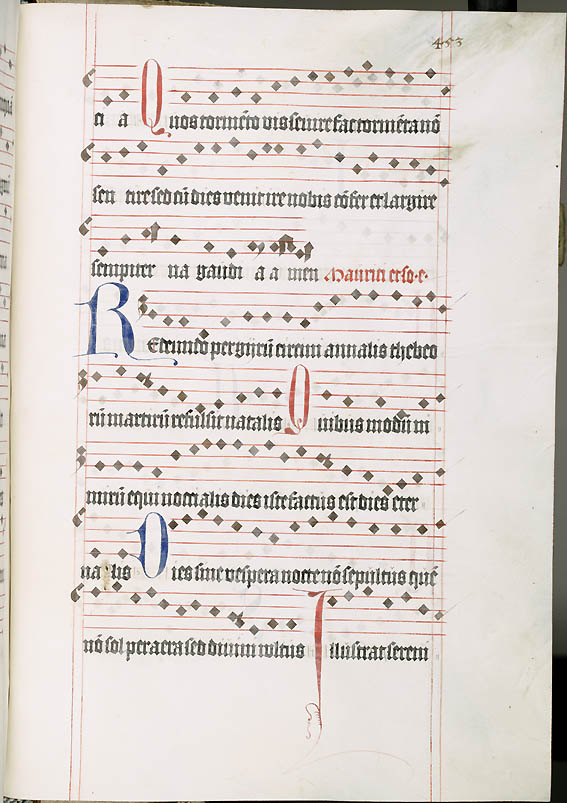 453
ci a Quos tormēto vis sevire fac tormēta nō
sen tire sed cū dies venit ire nobis cōfer et largire
sempiter na gaudi a a men Mauricii et so. e.
Redeundo per gyrū circini annalis thebeo
rū martirū refulsit natalis Quibus modū ni
mirū equinoctialis dies iste factus est dies eter
nalis Dies sine vespera nocte nō sepultus quē
nō sol per aera sed divini vultus Illustrat sereni